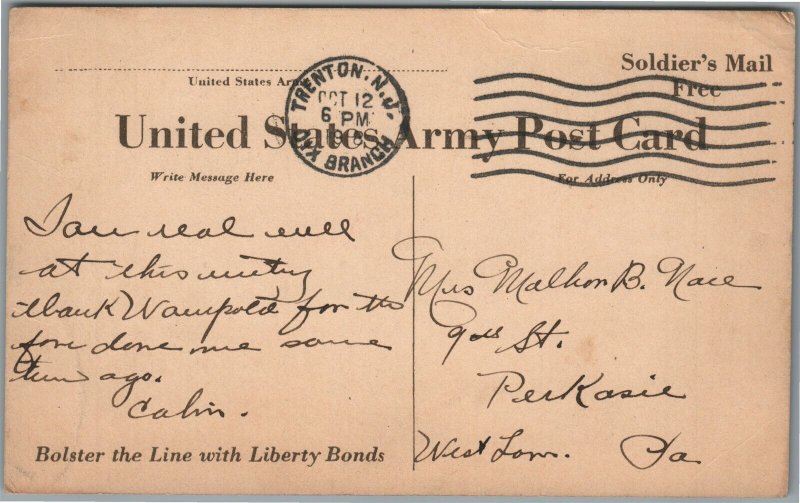 Soldier's Mail
Free
United States Army
TRENTON, N.J.
OCT 12
6 PM
DIX BRANCH
United States Army Post Card
Write Message Here
For Address Only
I am real well
at this writing
thank Wampold for the
done me some
time ago.
Calvin.
Mrs Malhon B. Nace
9th St.
Perkasie
West Pa
Bolster the Line with Liberty Bonds